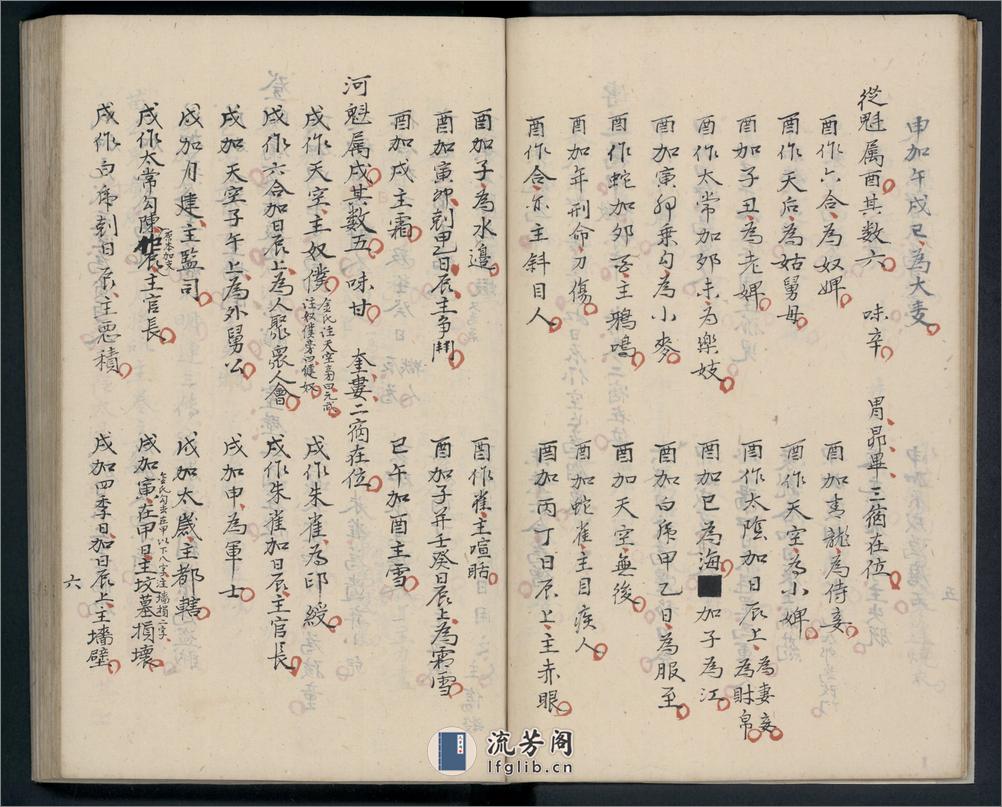 申加午戌巳、為大麦
從魁属酉其數六 味辛 胃昴畢、三宿在位
酉作六合、為奴婢 酉加青龍、為侍妾
酉作天后為姑舅母 酉作天空為小婢
酉加子丑、為老婢 酉作太陰加日辰上、為妻妾為財帛
酉作太常加夘未、為樂妓 酉加巳為海■加子為江
酉加寅卯乗勾、為小麥 酉加白虎甲乙日為服至
酉作蛇加夘主鴉鳴 酉加天空、無後
酉加年刑命、刀傷 酉加蛇雀、主目疾人
酉作合亦主斜目人 酉加丙丁日辰上、主赤眼
酉加子、為水邊 酉作雀、主喧聒
酉加寅卯尅甲乙日辰、主爭鬥 酉加子并壬癸日辰上、為霜雪
酉加戌主霜 巳午加酉主雪
河魁属戌其數五 味甘 奎婁二宿在位
戌作天空、主奴僕 金氏注天空旁四元武注奴僕旁四健奴 戌作朱雀、為印綬
戌作六合加日辰上、為人聚衆人會 戌作朱雀加日辰、主官長
戌加天空子午上、為外舅公 戌加申、為軍士
戌加月建、主監司 戌加太歲、主都轄
戌作太常勾陳辰、主官長 戌加寅、在甲日、主坟墓損壞
戌作白虎尅日辰、主惡積 戌加四季日、加日辰上、主墻壁
六
流芳阁
lfglib.cn